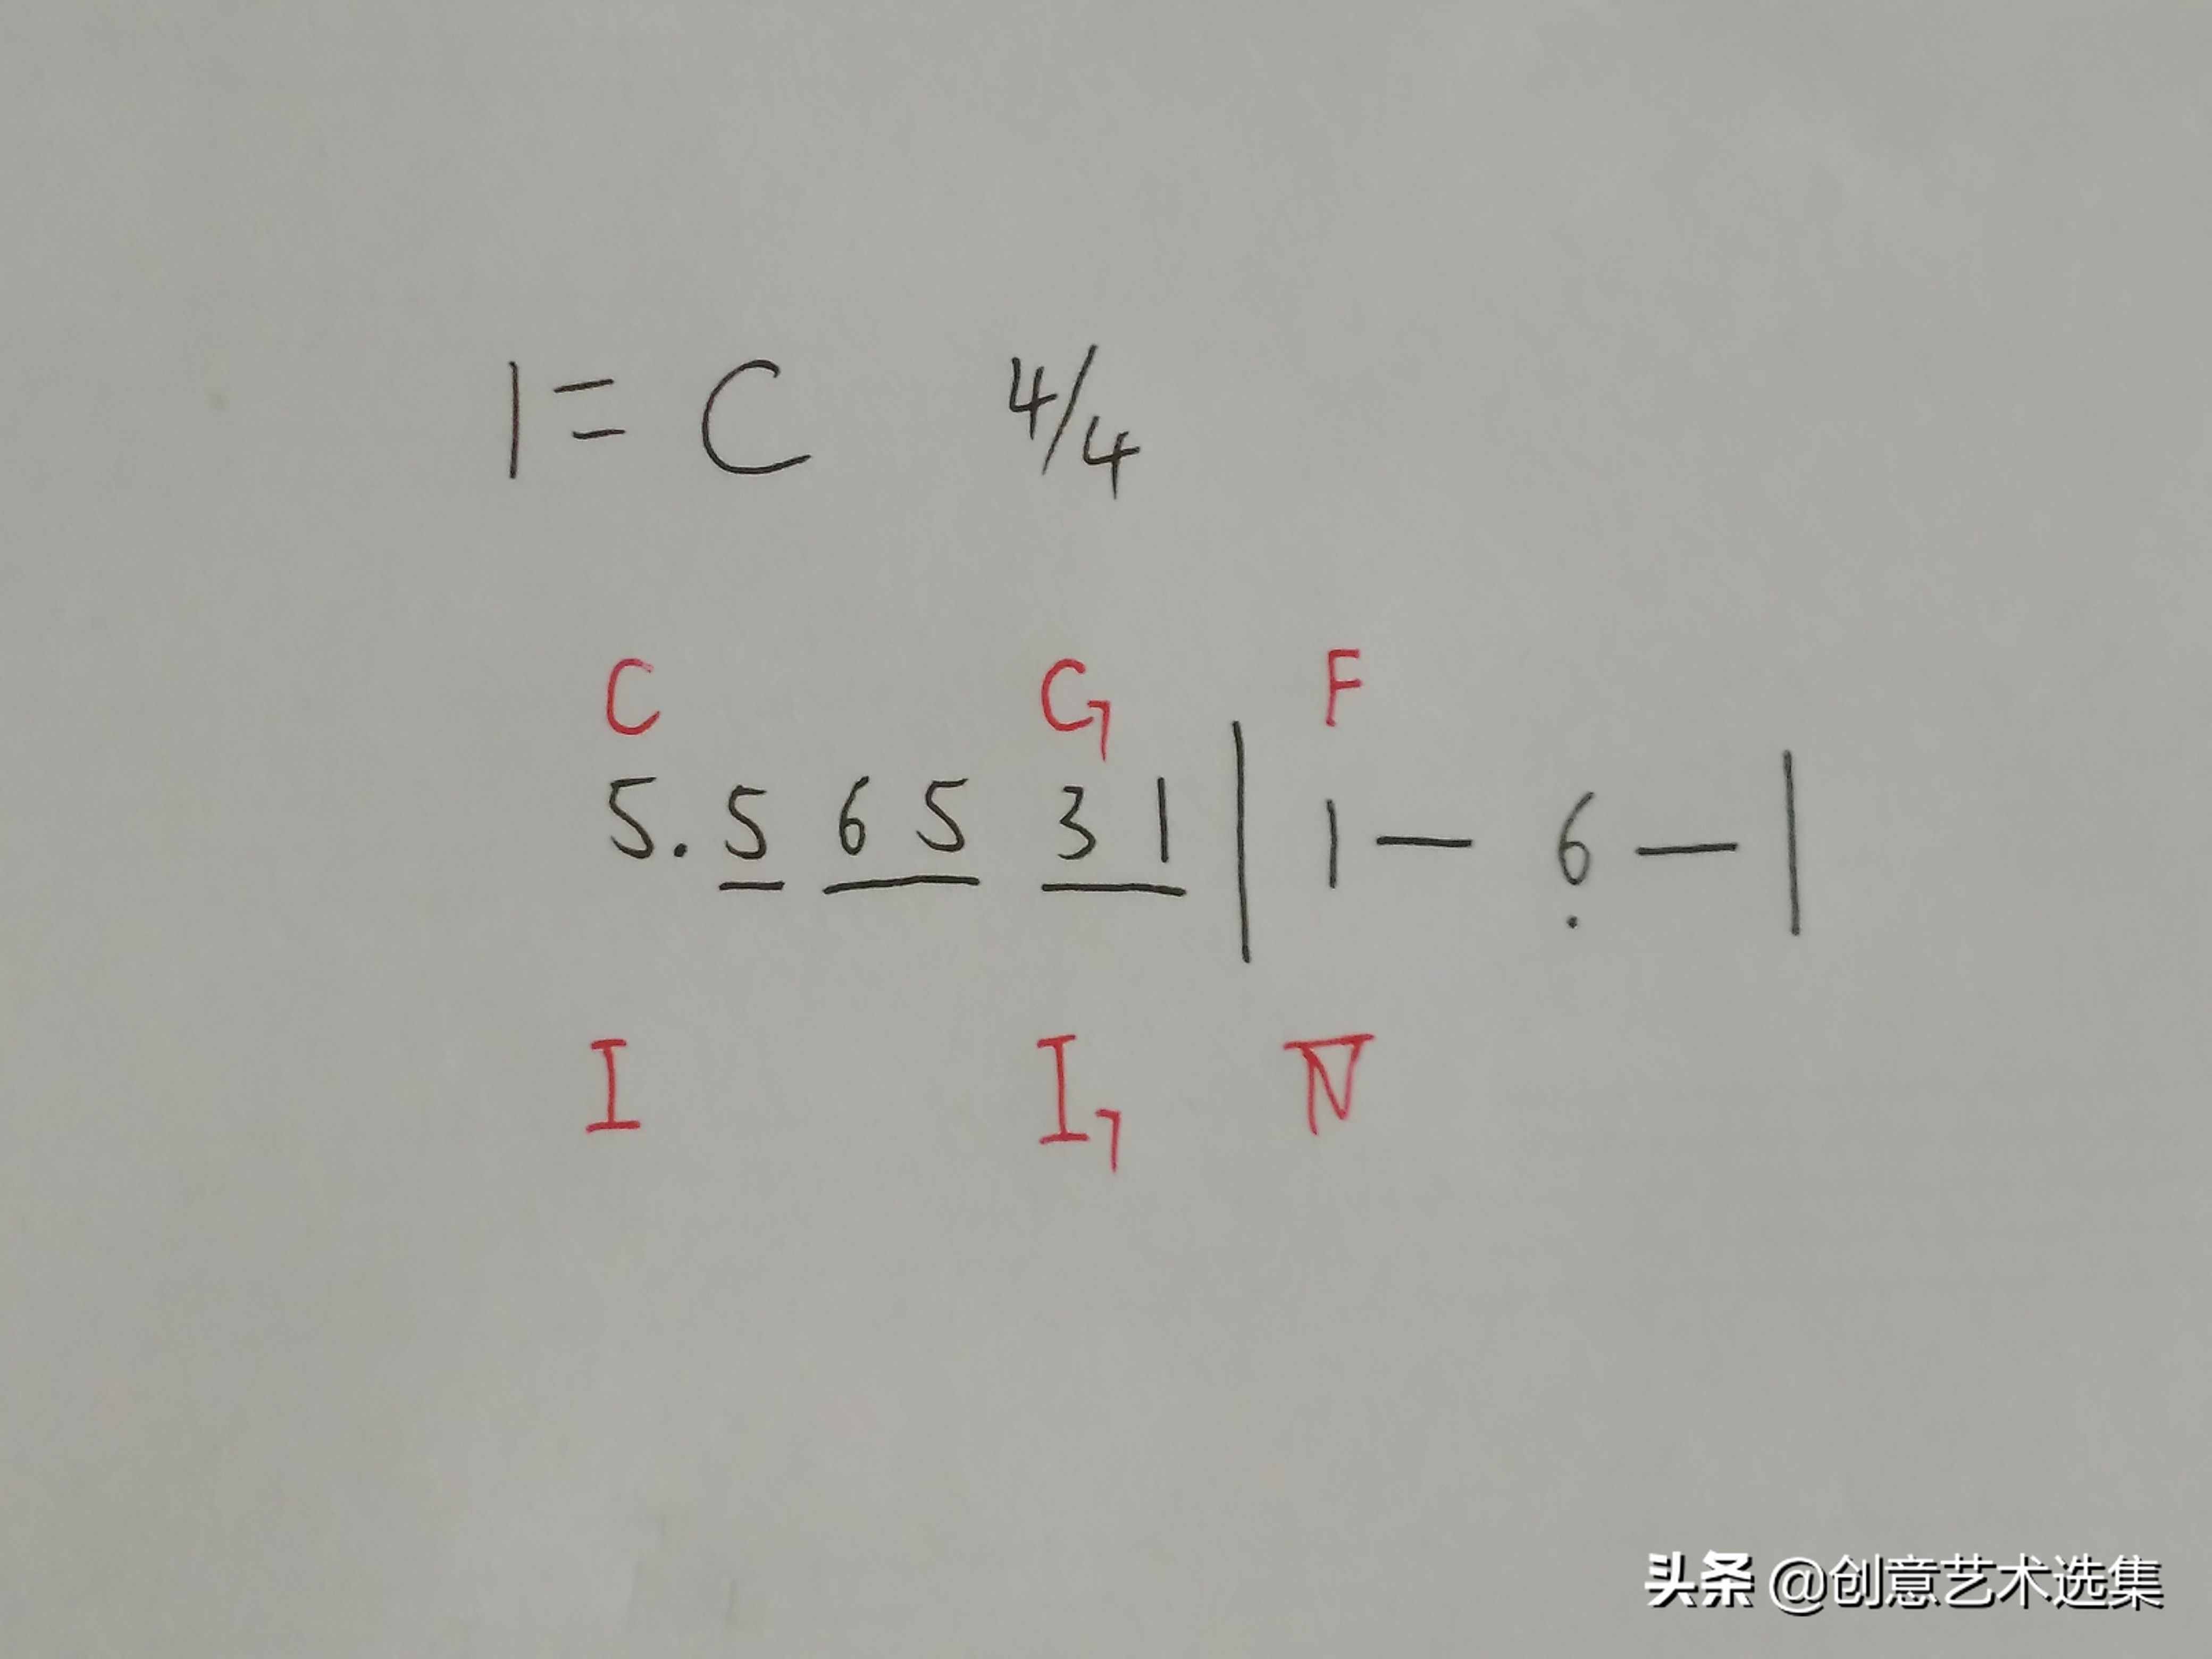 1 = C 4/4
C C7 F
5. 5 6 5 3 1 | 1 — 6̣ — |
I I7 IV
头条 @创意艺术选集